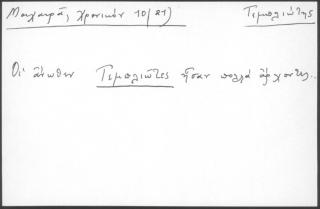 Μαχαιρᾶ, Χρονικόν 10/21)
Τεμπλιώτης
Οἱ ἄνωθεν Τεμπλιῶτες ἦσαν πολλὰ ἄρχοντες..